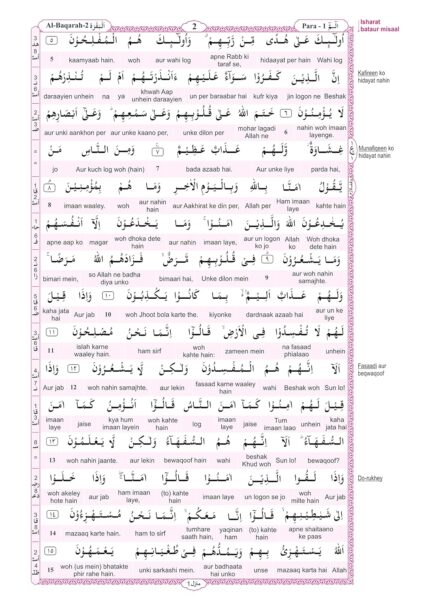 Al-Baqarah-2 اَلْبَقَرَة ٢
2
Para - 1 الٓمّٓ ١
Isharat
bataur misaal
اُولٰٓئِكَ عَلٰى هُدًى مِّنْ رَّبِّهِمْ ۙ وَاُولٰٓئِكَ هُمُ الْمُفْلِحُوْنَ ۝٥
Wahi log hidayat per hain apne Rabb ki taraf se, aur wahi log woh kaamyaab hain. 5
اِنَّ الَّذِيْنَ كَفَرُوْا سَوَآءٌ عَلَيْهِمْ ءَاَنْذَرْتَهُمْ اَمْ لَمْ تُنْذِرْهُمْ
beshak jin logon ne kufr kiya un per baraabar hai khwah Aap unhein daraayein ya na unhein daraayein
Kafireen ko
hidayat nahin
لَا يُؤْمِنُوْنَ ۝٦ خَتَمَ اللّٰهُ عَلٰى قُلُوْبِهِمْ وَعَلٰى سَمْعِهِمْ ؕ وَعَلٰٓى اَبْصَارِهِمْ
nahin woh imaan layenge. 6 mohar lagadi Allah ne unke dilon per aur unke kaano per, aur unki aankhon per
غِشَاوَةٌ ؗ وَّلَهُمْ عَذَابٌ عَظِيْمٌ ۝٧ وَمِنَ النَّاسِ مَنْ
parda hai, Aur unke liye bada azaab hai. 7 Aur kuch log woh (hain) jo
Munafiqeen ko
hidayat nahin
يَّقُوْلُ اٰمَنَّا بِاللّٰهِ وَبِالْيَوْمِ الْاٰخِرِ وَمَا هُمْ بِمُؤْمِنِيْنَ ۝٨
kahte hain Ham imaan laye Allah per aur Aakhirat ke din per, aur nahin hain woh imaan waaley. 8
يُخٰدِعُوْنَ اللّٰهَ وَالَّذِيْنَ اٰمَنُوْا ۚ وَمَا يَخْدَعُوْنَ اِلَّآ اَنْفُسَهُمْ
Woh dhoka dete hain Allah ko aur un logon ko jo imaan laye, aur nahin woh dhoka dete hain magar apne aap ko
وَمَا يَشْعُرُوْنَ ۝٩ فِيْ قُلُوْبِهِمْ مَّرَضٌ ۙ فَزَادَهُمُ اللّٰهُ مَرَضًا ۚ
aur woh nahin samajhte. 9 Unke dilon mein bimaari hai, so Allah ne badha diya unko bimari mein,
وَلَهُمْ عَذَابٌ اَلِيْمٌۢ ۙ بِمَا كَانُوْا يَكْذِبُوْنَ ۝١٠ وَاِذَا قِيْلَ
aur un ke liye dardnaak azaab hai kiyonke woh Jhoot bola karte the. 10 Aur jab kaha jata hai
لَهُمْ لَا تُفْسِدُوْا فِي الْاَرْضِ ۙ قَالُوْٓا اِنَّمَا نَحْنُ مُصْلِحُوْنَ ۝١١
unhein na fasaad phialaao zameen mein woh kahte hain: ham sirf islah karne waaley hain. 11
اَلَآ اِنَّهُمْ هُمُ الْمُفْسِدُوْنَ وَلٰكِنْ لَّا يَشْعُرُوْنَ ۝١٢ وَاِذَا
Sun lo! Beshak woh wahi fasaad karne waaley hain aur lekin woh nahin samajhte. 12 Aur jab
Fasaadi aur
beqwaqoof
قِيْلَ لَهُمْ اٰمِنُوْا كَمَآ اٰمَنَ النَّاسُ قَالُوْٓا اَنُؤْمِنُ كَمَآ اٰمَنَ
kaha jata hai unhein Tum imaan laao jaise imaan laye log woh kahte hain kya hum imaan layein jaise imaan laye
السُّفَهَآءُ ؕ اَلَآ اِنَّهُمْ هُمُ السُّفَهَآءُ وَلٰكِنْ لَّا يَعْلَمُوْنَ ۝١٣
bewaqoof? Sun lo! beshak Khud woh wahi bewaqoof hain aur lekin woh nahin jaante. 13
وَاِذَا لَقُوا الَّذِيْنَ اٰمَنُوْا قَالُوْٓا اٰمَنَّا ۚ وَاِذَا خَلَوْا
Aur jab woh milte hain un logon se jo imaan laye (to) kahte hain ham imaan laye, aur jab woh akeley hote hain
Do-rukhey
اِلٰى شَيٰطِيْنِهِمْ ۙ قَالُوْٓا اِنَّا مَعَكُمْ ۙ اِنَّمَا نَحْنُ مُسْتَهْزِءُوْنَ ۝١٤
apne shaitaano ke paas (to) kahte hain yaqinan ham tumhare saath hain, ham to sirf mazaaq karte hain. 14
اَللّٰهُ يَسْتَهْزِئُ بِهِمْ وَيَمُدُّهُمْ فِيْ طُغْيَانِهِمْ يَعْمَهُوْنَ ۝١٥
Allah mazaaq karta hai unse aur badhaata hai unko unki sarkashi mein. woh (us mein) bhatakte phir rahe hain. 15
منزل ١